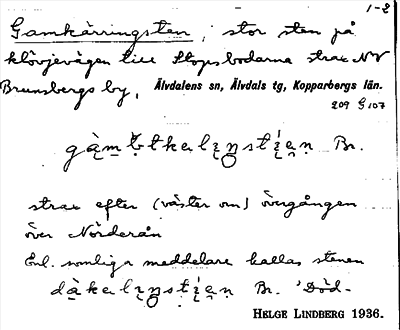 1-2
Gamkärringsten, stor sten på
klövjevägen till Stopsbodarna strax NV
Brunnsbergs by,
Älvdalens sn, Älvdals tg, Kopparbergs län.
209 G 107
Br.
strax efter (väster om) övergången
över Nörderån
Enl. somliga meddelare kallas stenen
Br. 'Död-
HELGE LINDBERG 1936.